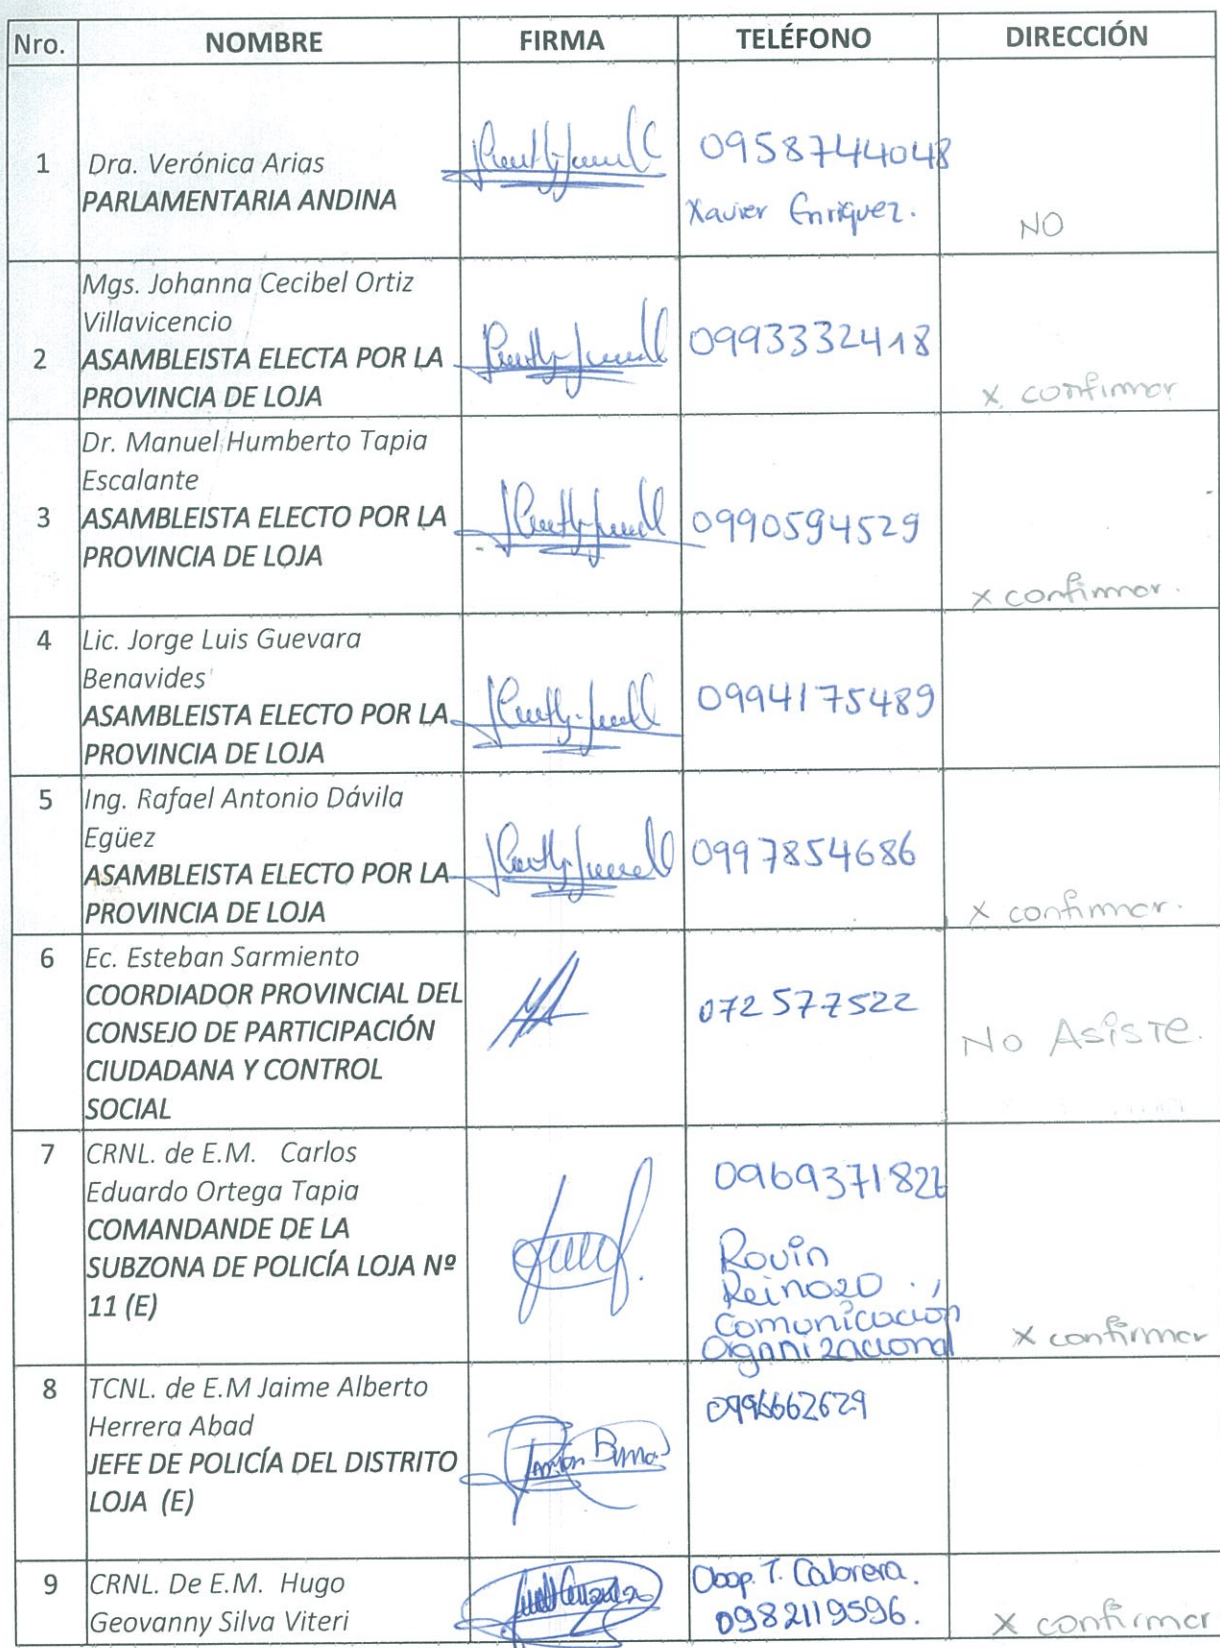 Nro. NOMBRE FIRMA TELÉFONO DIRECCIÓN
1 Dra. Verónica Arias
PARLAMENTARIA ANDINA
0958744048
Xavier Enriquez.
NO
Mgs. Johanna Cecibel Ortiz
Villavicencio
2 ASAMBLEISTA ELECTA POR LA
PROVINCIA DE LOJA
0993332418
x confirmar
Dr. Manuel Humberto Tapia
Escalante
3 ASAMBLEISTA ELECTO POR LA
PROVINCIA DE LOJA
0990594529
x confirmar.
4 Lic. Jorge Luis Guevara
Benavides
ASAMBLEISTA ELECTO POR LA
PROVINCIA DE LOJA
0994175489
5 Ing. Rafael Antonio Dávila
Egüez
ASAMBLEISTA ELECTO POR LA
PROVINCIA DE LOJA
0997854686
x confirmar.
6 Ec. Esteban Sarmiento
COORDIADOR PROVINCIAL DEL
CONSEJO DE PARTICIPACIÓN
CIUDADANA Y CONTROL
SOCIAL
072577522
No Asiste.
7 CRNL. de E.M. Carlos
Eduardo Ortega Tapia
COMANDANDE DE LA
SUBZONA DE POLICÍA LOJA Nº
11 (E)
Rovin
Reinozo
Comunicación
Organizacional
x confirmar
8 TCNL. de E.M Jaime Alberto
Herrera Abad
JEFE DE POLICÍA DEL DISTRITO
LOJA (E)
0996662629
9 CRNL. De E.M. Hugo
Geovanny Silva Viteri
T. Cabrera.
0982119596.
x confirmar